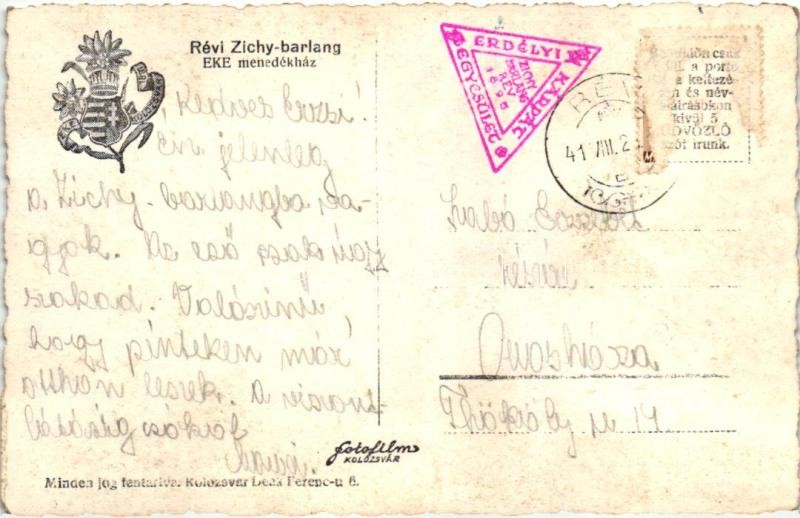 Révi Zichy-barlang
EKE menedékház
EKE
KOLOZSVÁR
Kedves Erzsi!
Én jelenleg
a Zichy-barlangba va-
gyok. Az eső csak úgy
szakad. Valószínű,
hogy pénteken már
otthon leszek. A viszont
látásig csókol
Minden jog fentartva. Kolozsvár Deák Ferenc-u 6.
fotofilm
KOLOZSVÁR
ERDÉLYI
KÁRPÁT
EGYESÜLET
ZICHY
BARLANG
RÉV
RÉV
41 VIII. 2
csak
a porto
a keltezé
en és név-
aláírásokon
kívül 5
ÜDVÖZLŐ
szót írunk.
Szabó Erzsébet
részére
Orosháza
Thököly u 14